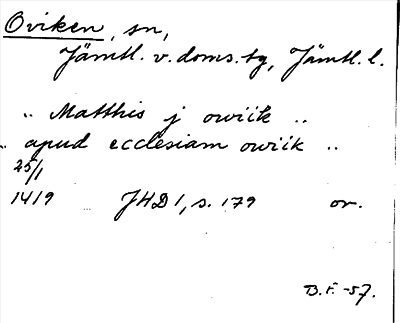 Oviken, sn,
Jämtl. v. doms. tg, Jämtl. l.
.. Matthis j owiik ..
.. apud ecclesiam owiik ..
25/1
1419 JHD 1, s. 179 or.
B.F. -57.